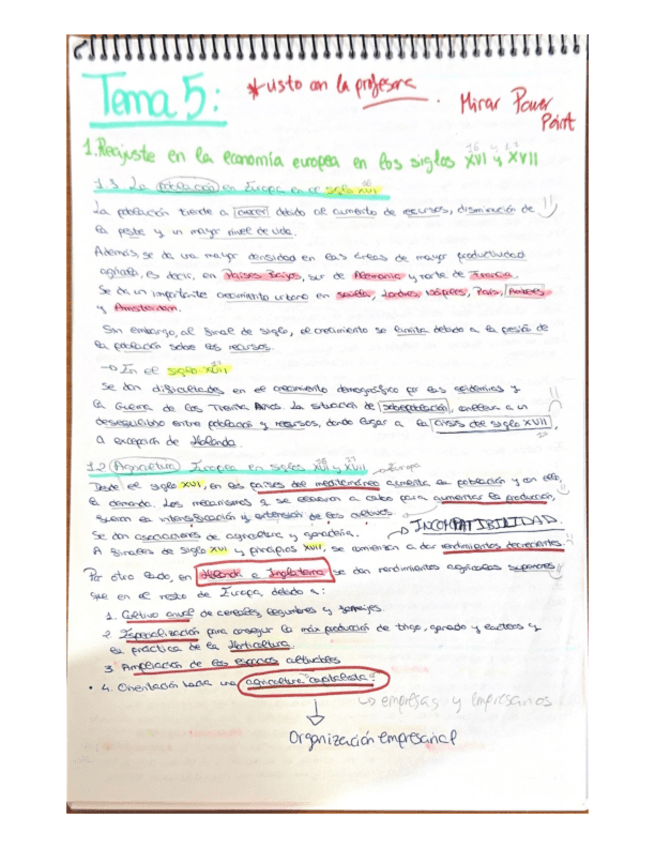 Tema 5: *visto con la profesora. Mirar Power
Point
1. Reajuste en la economía europea en los siglos XVI y XVII
16 y 17
1.3 La población en Europa en el siglo XVI
La población tiende a crecer debido al aumento de recursos, disminución de
la peste y un mayor nivel de vida.
Además, se da una mayor densidad en las áreas de mayor productividad
agrícola, es decir, en Países Bajos, sur de Alemania y norte de Francia.
Se da un importante crecimiento urbano en Sevilla, Londres, Nápoles, París, Amberes
y Amsterdam.
Sin embargo, al final de siglo, el crecimiento se limita debido a la presión de
la población sobre los recursos.
→ En el siglo XVII
Se dan dificultades en el crecimiento demográfico por las epidemias y
la Guerra de los Treinta Años. La situación de sobrepoblación, conlleva a un
desequilibrio entre población y recursos, dando lugar a la crisis del siglo XVII,
a excepción de Holanda.
1.2 Agricultura Europea en siglos XVI y XVII → Europa
Desde el siglo XVI, en los países del mediterráneo aumenta la población y con ello,
la demanda. Los mecanismos q se llevaron a cabo para aumentar la producción,
fueron la intensificación y extensión de los cultivos.
Se dan asociaciones de agricultura y ganadería. → INCOMPATIBILIDAD.
A finales de siglo XVI y principios XVII, se comienzan a dar rendimientos decrecientes.
Por otro lado, en Holanda e Inglaterra se dan rendimientos agrícolas superiores
que en el resto de Europa, debido a:
1. Cultivo anual de cereales, legumbres y forrajes.
2 Especialización para conseguir la máx producción de trigo, ganado y lácteos y
la práctica de la Horticultura.
3 Ampliación de los espacios cultivables
• 4. Orientación hacia una agricultura "capitalista".
↳ empresas y empresarios
Organización empresarial